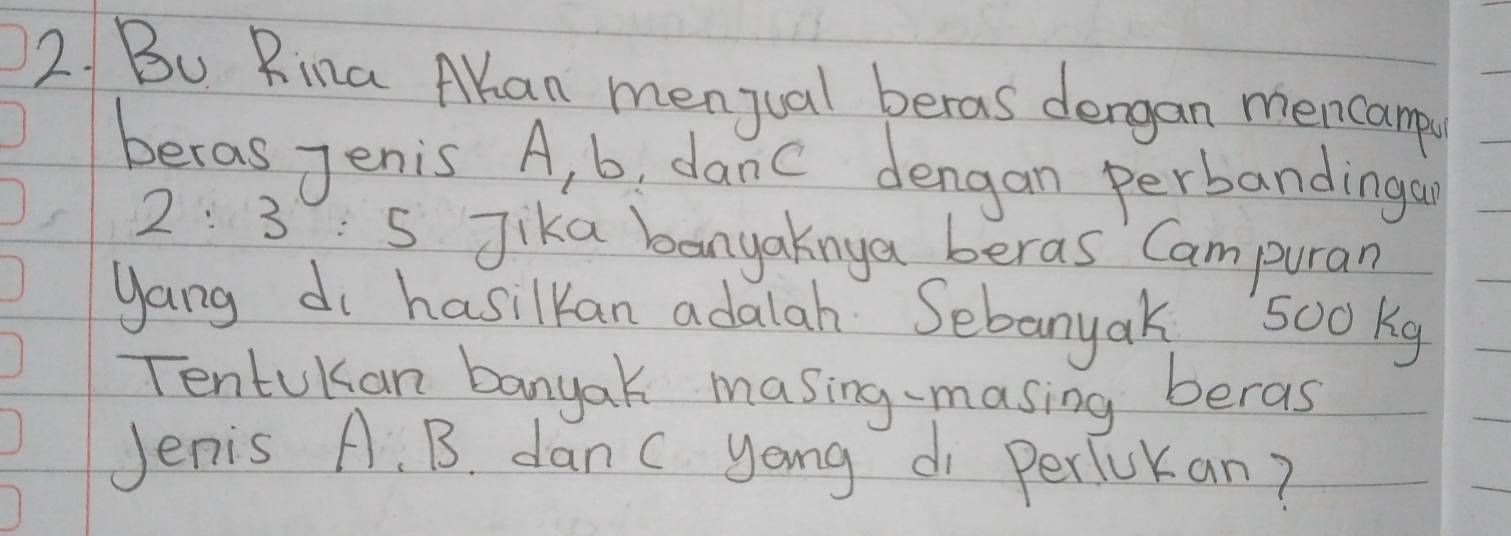 2. Bu Rina Akan menjual beras dengan mencampur
beras jenis A, b, dan C dengan perbandingan
2 : 3 : 5 Jika banyaknya beras Campuran
yang di hasilkan adalah Sebanyak 500 kg
Tentukan banyak masing-masing beras
Jenis A, B. dan C yang di perlukan?